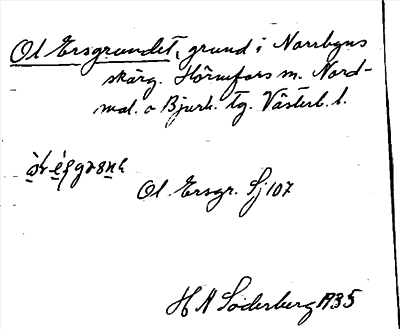 Ol Ersgrundet, grund i Norrbyns
skärg. Hörnefors m. Nord-
mal. o Bjurh. tg. Västerb. l.
Ol Ersgr. Sj 107
H A Söderberg 1935